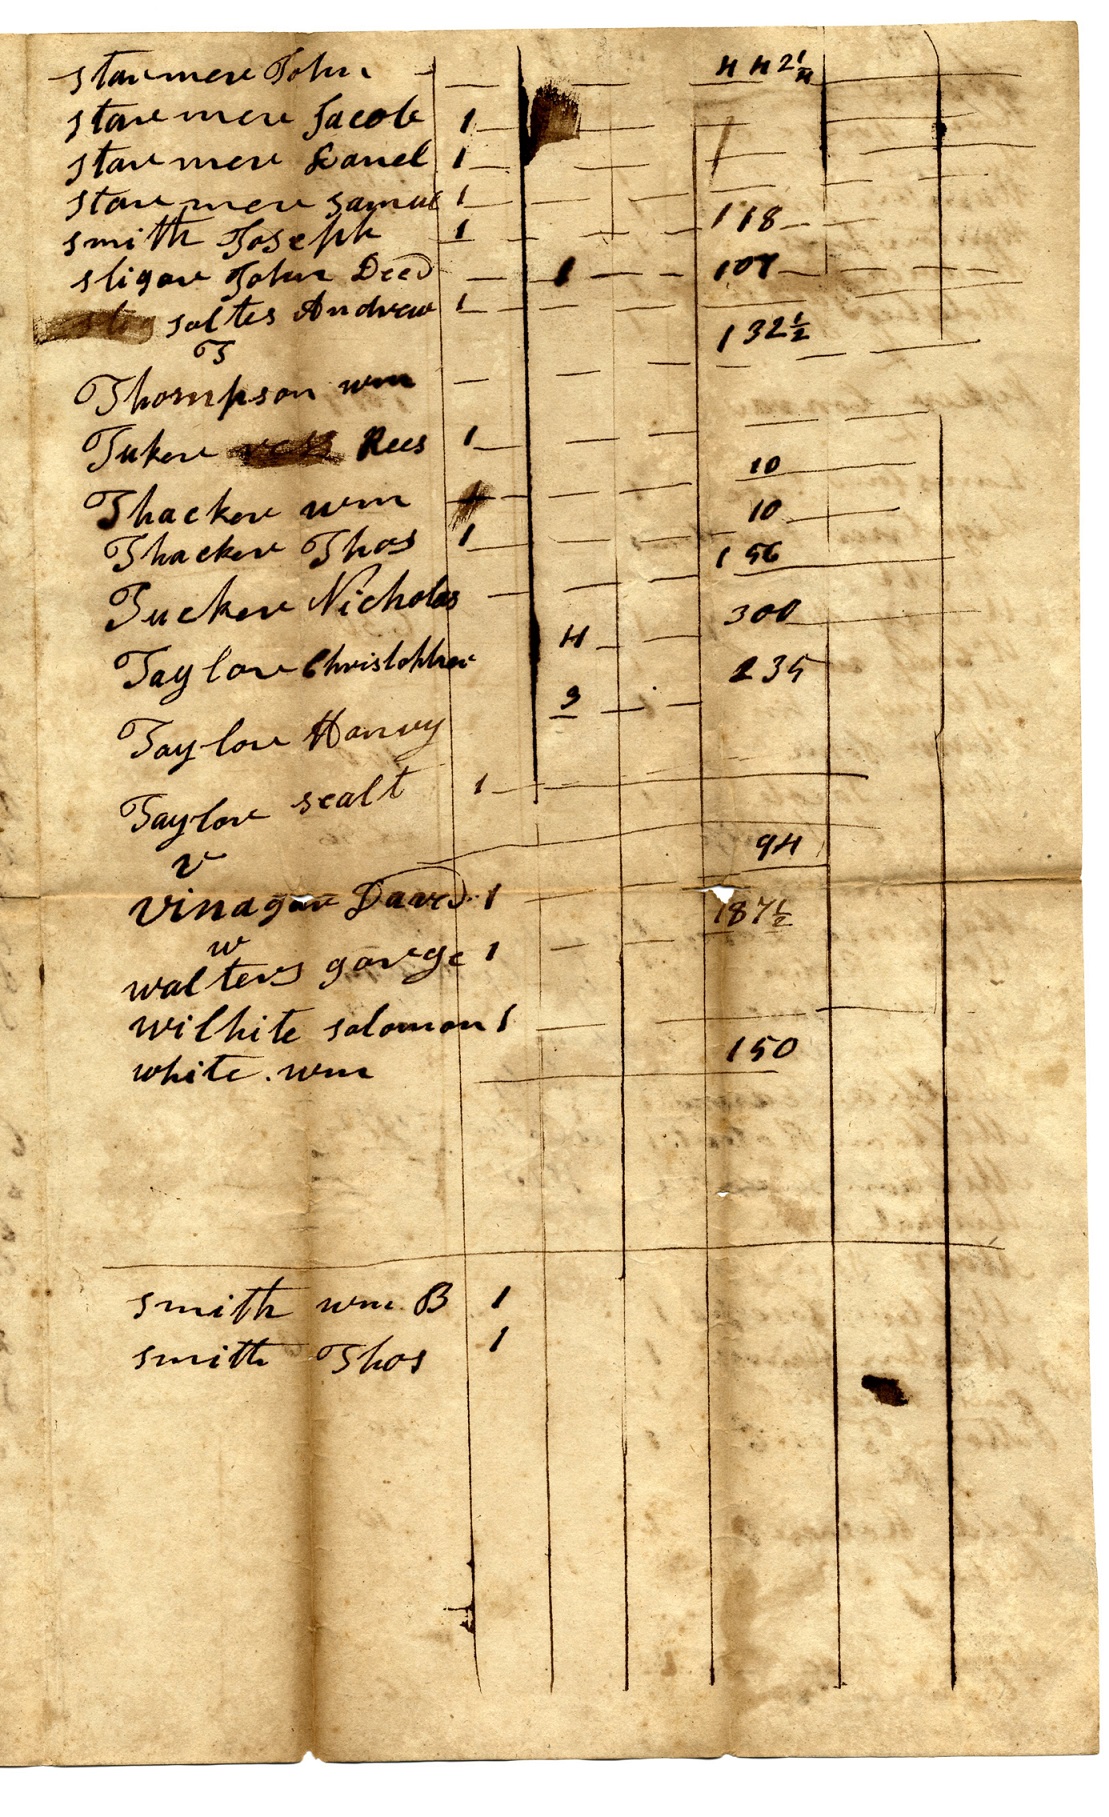 Starmere John - — — — — 442¼
Starmere Jacob 1
Starmere Danel 1 — — — 1
Starmere Samul 1
Smith Joseph 1 — — — 118
Sligar John Deed — 1 — — 107
Saltes Andrew 1 — — — 132½
T
Thompson Wm — — — —
Tuker Rees 1 — — —
Thacker Wm — — — 10
Thacker Thos 1 — — — 10
156
Tucker Nicholas — — — — 300
Taylor Christopher 4 — — 235
3 — —
Taylor Harvy
Taylor Sealt 1 — —
94
V
Vinagar Daved 1 — — — 187½
W
Walters Gorge 1 — — —
Wilhite Solomon 1 — — —
150
White. Wm
Smith Wm. B 1
Smith Thos 1